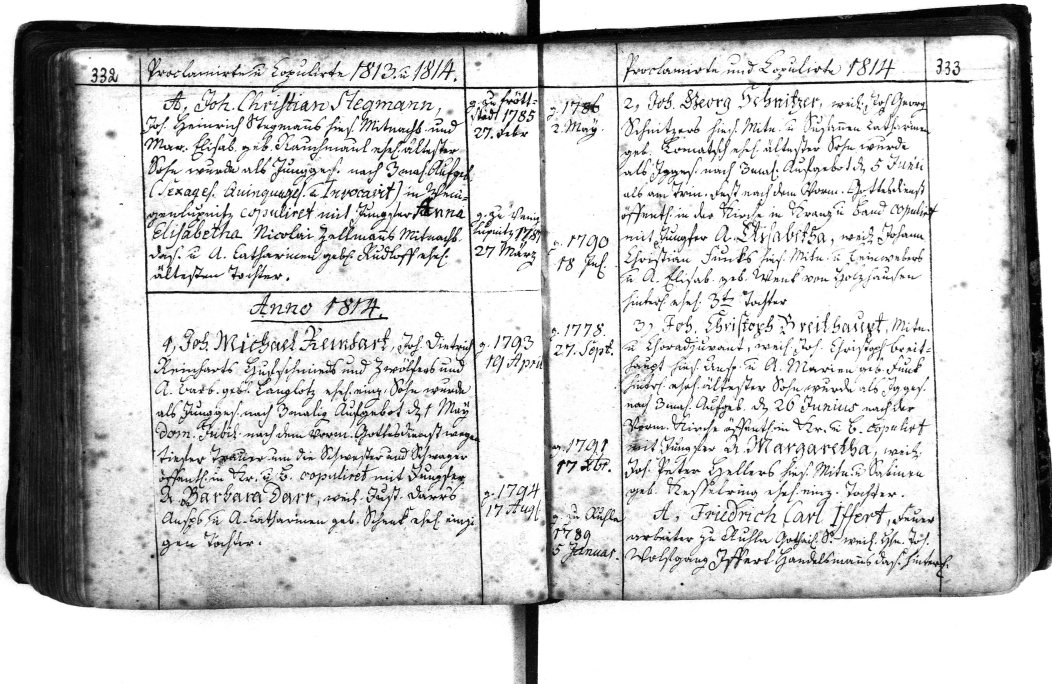 332
Proclamirte u. Copulirte 1813. u 1814.
A, Joh. Christian Stegmann,
Joh. Heinrich Stegmanns hies. Mitnachb. und
Mar. Elisab. geb. Rauchmaul ehel. ältester
Sohn wurde als Jungges. nach 3mal. Aufgeb.
(Sexages. Quinquages. u Invocavit) in
copuliret mit Jungfer Anna
Elisabetha Nicolai Mitnachb.
das. u. A. Catharinen gebh. Rudloff ehel.
ältesten Tochter.
g. zu Frött-
städt 1785
27. Febr
g. zu Wenig
Lupnitz 1787
27 März
Anno 1814.
1, Joh. Michael Reinhart, Joh. Dietrich
Reinharts Hufschmieds und Zwölfers und
A. Barb. geb. Langlotz ehel. einz. Sohn wurde
als Jungges. nach 3malig Aufgebot d. 1 May
dom. Jubil. nach dem Vorm. Gottesdienst wegen
tiefer Trauer um die Schwester und Schwager
öffentl. in Kr. u. B. copuliret mit Jungfer
A. Barbara Darr, weil. Just. Darrs
Anspb. u A. Catharinen geb. Schenk ehel. einzi
gen Tochter.
g. 1793
19 April
g. 1794
17 Aug.
Proclamirte und Copulirte 1814
333
g. 1786
2. May.
2, Joh. Georg Schnitzer, weil. Joh. Georg
Schnitzers hies. Mitn. u Susannen Catharinen
geb. Lomatsch ehel. ältester Sohn wurde
als Jgges. nach 3mal. Aufgebot d. 5 Junii
als am Trin. Fest nach dem Vorm. Gottesdienst
öffentl. in der Kirche in Kranz u Band copulirt
mit Jungfer A. Elisabetha, weil. Johann
Christian Funcks hies. Mitn. u. Leinwebers
u A. Elisab. geb. Wenk von Holzhausen
hinterl. ehel. 3ten Tochter
g. 1790
18 Jul.
3, Joh. Christoph Breithaupt, Mitn.
u Choradjuvant, weil. Joh. Christoph Breit-
haupt hies. Ansp. u A. Marien geb. Funck
hinterl. ehel. ältester Sohn wurde als Jgges.
nach 3mal. Aufgeb. d. 26 Junius nach der
Vorm. Kirche öffentl. in Kr. u. B. copulirt
mit Jungfer A. Margaretha, weil.
Joh. Peter Hellers hies. Mitn. u Sabinen
geb. Kesselring ehel. einz. Tochter.
g. 1778.
27. Sept.
g. 1791
17 Xbr.
A, Friedrich Carl Iffert, Feuer
arbeiter zu Ruhla Goth. S. weil. Hrn. Joh.
Wolfgang Iffert Handelsmanns das. hinterl.
g. zu Ruhla
1789
5 Januar.